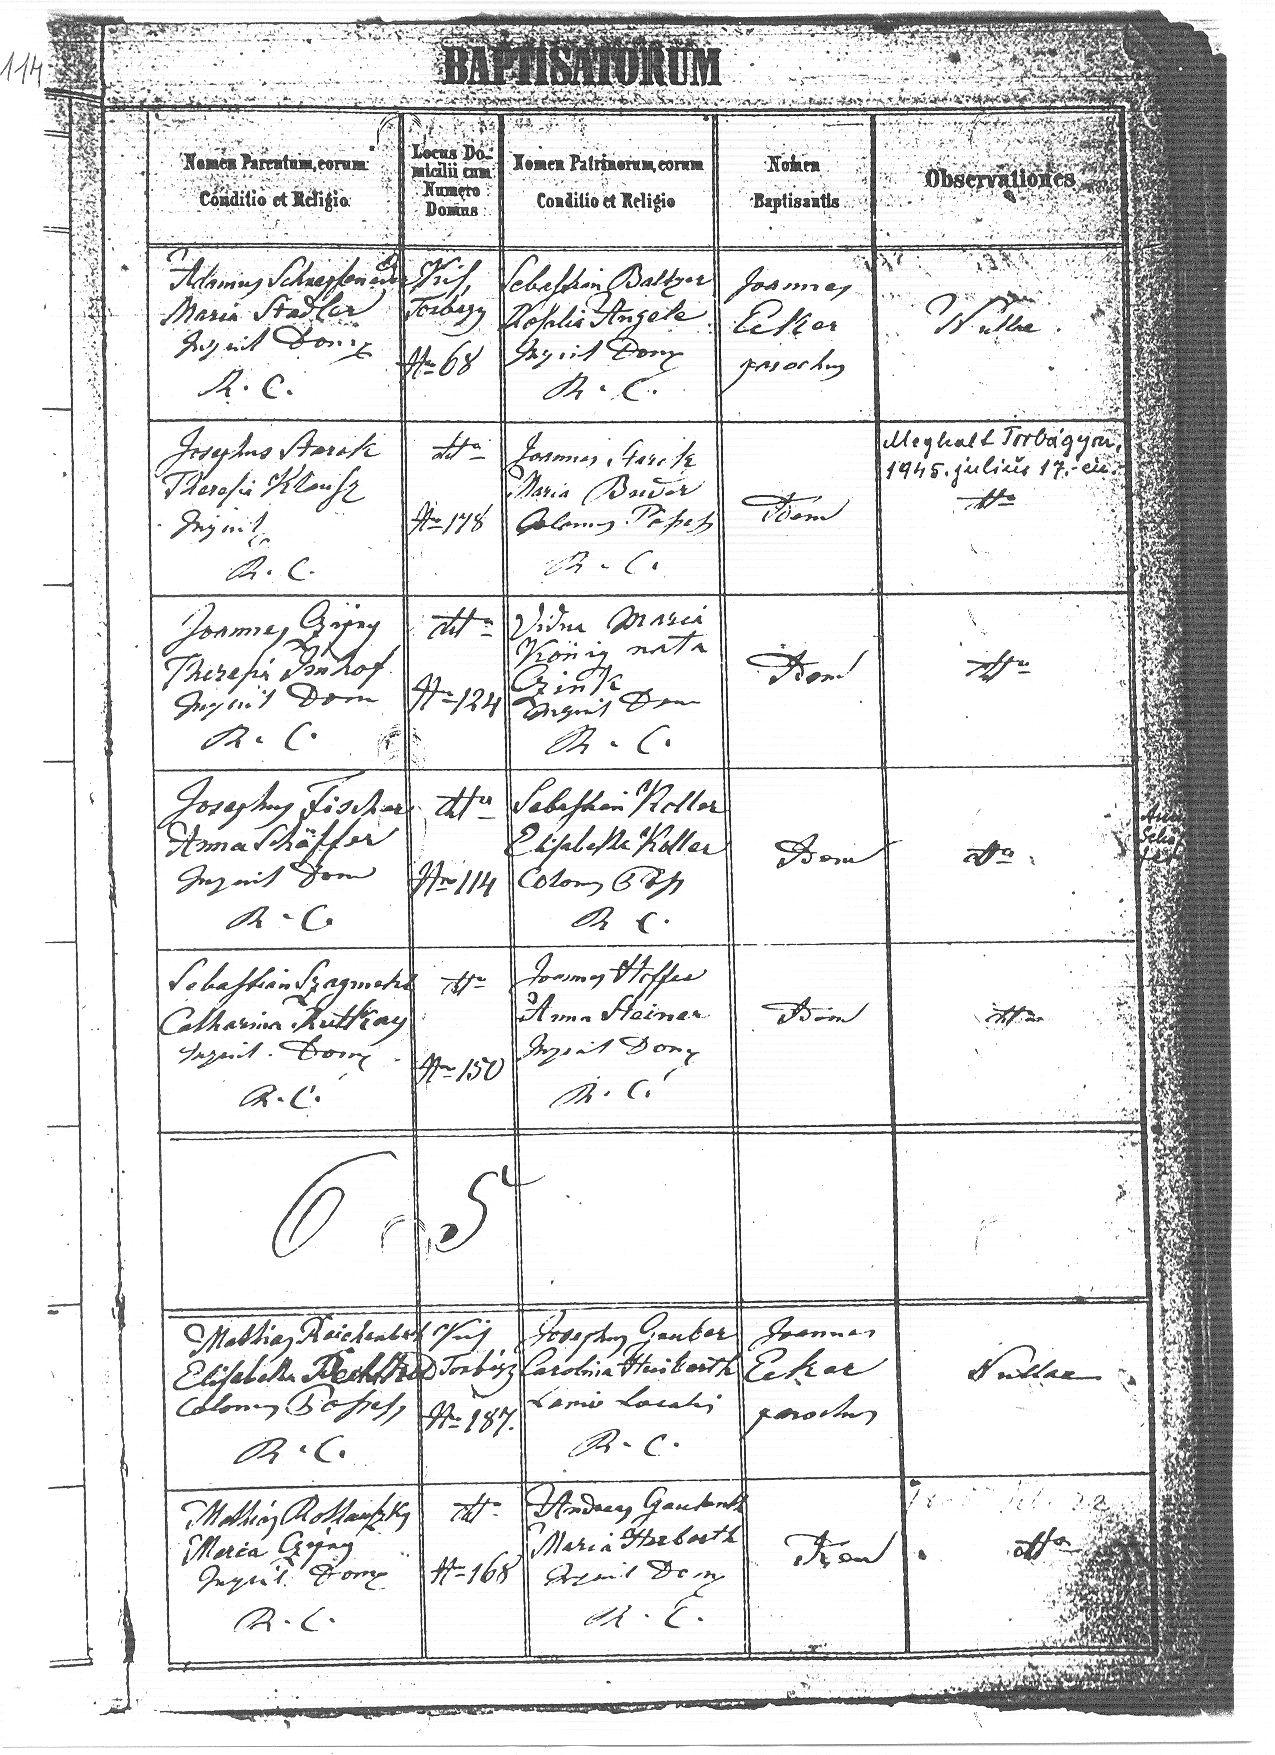 114
BAPTISATORUM
Nomen Parentum, eorum
Conditio et Religio
Locus Do-
micilii cum
Numero
Domus
Nomen Patrinorum, eorum
Conditio et Religio
Nomen
Baptisantis
Observationes
Adamus
Maria Stadler
Inquil Domy
R. C.
Kis
Torbágy
No 68
Sebastian Baltzer
Rosalia Angele
Inquil Domy
R. C.
Joannes
Ecker
parochus
Nullae.
Josephus Starck
Theresia Klausz
Inquil
R. C.
dtto
No 178
Joannes Starck
Maria Bruder
Colonus Possess
R. C.
Idem
Meghalt Torbágyon,
1945. julius 17.-én.
dtto
Joannes
Theresia Imhof
Inquil Dom
R. C.
dtto
No 124
Vidua Maria
König nata
Czink
Inquil Dom
R. C.
Idem
dtto
Josephus Fischer
Anna Schäffer
Inquil Dom
R. C.
dtto
No 114
Sebastian Koller
Elisabetha Koller
Colonus Poss
R. C.
Idem
dtto
Sebastian
Catharina Ruttkay
Inquil. Domy
R. C.
dtto
No 150
Joannes Steffer
Anna Steiner
Inquil Domy
R. C.
Idem
dtto
6 5
Mathias Reichenbach
Elisabetha
Colonus Possess
R. C.
Kis
Torbágy
No 187.
Josephus Gauber
Carolina Herbarth
Lanio Localis
R. C.
Joannes
Ecker
parochus
Nullae
Mathias
Maria
Inquil Domy
R. C.
dtto
No 168
Andreas
Maria Herbarth
Inquil Domy
R. C.
Idem
dtto